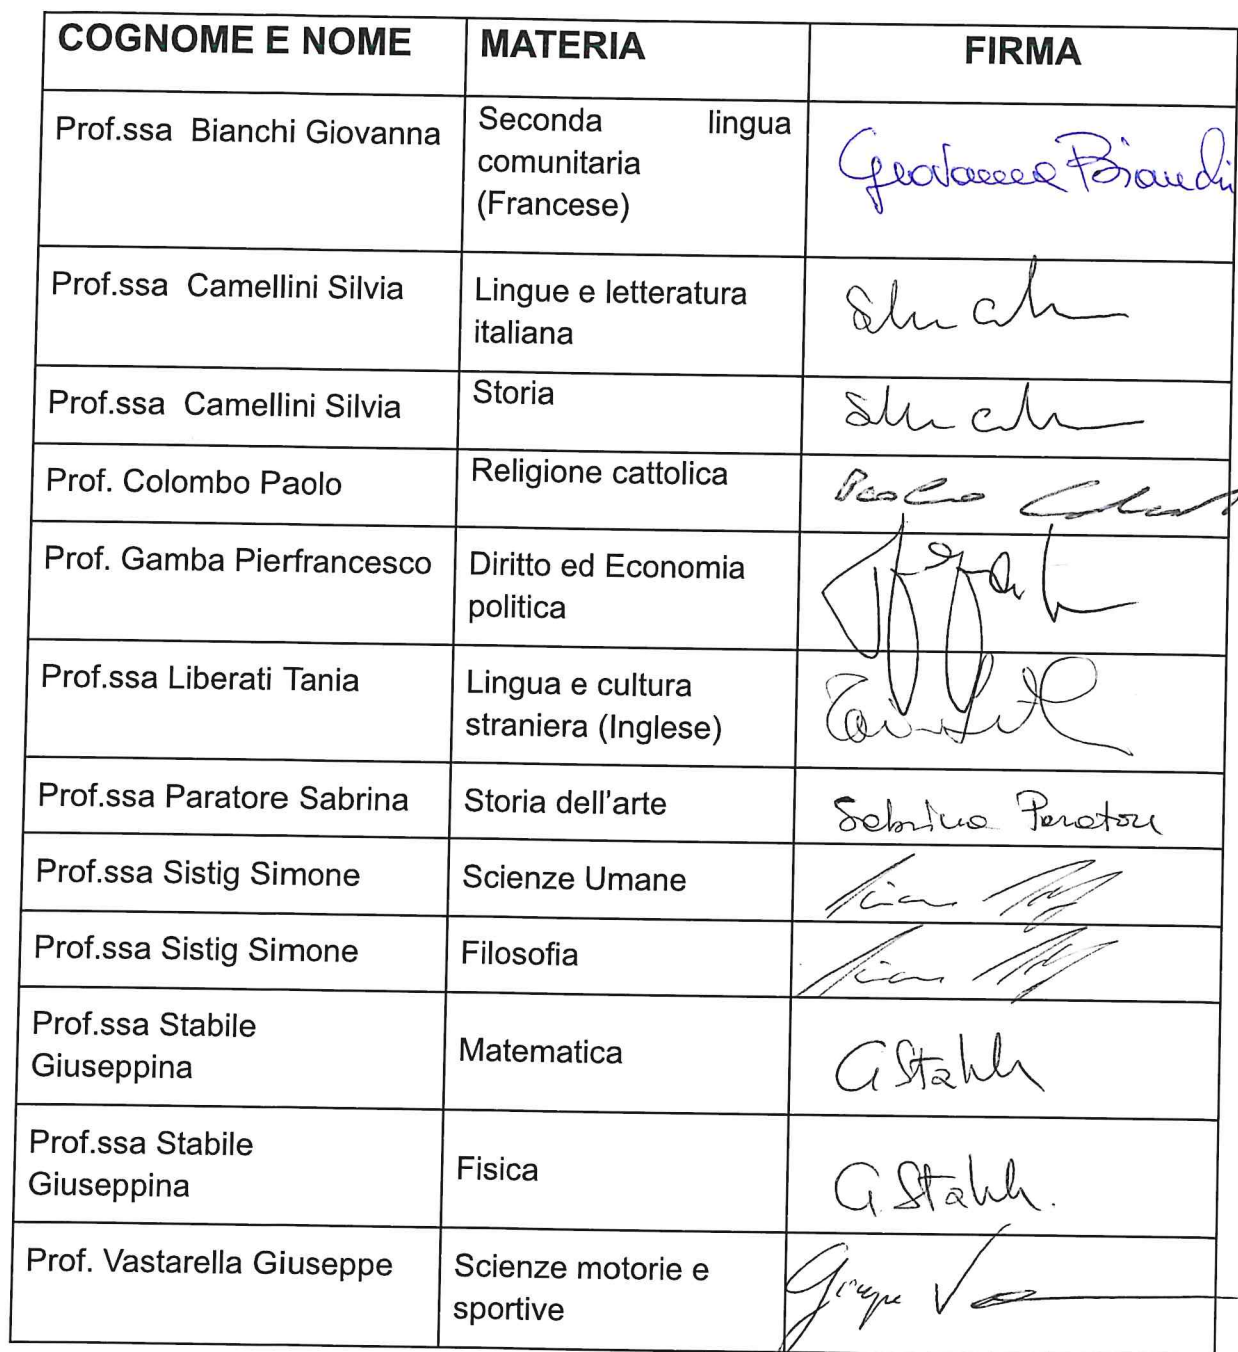 COGNOME E NOME MATERIA FIRMA
Prof.ssa Bianchi Giovanna Seconda lingua
comunitaria
(Francese)
Giovanna Bianchi
Prof.ssa Camellini Silvia Lingue e letteratura
italiana
Prof.ssa Camellini Silvia Storia
Prof. Colombo Paolo Religione cattolica
Paolo
Prof. Gamba Pierfrancesco Diritto ed Economia
politica
Prof.ssa Liberati Tania Lingua e cultura
straniera (Inglese)
Prof.ssa Paratore Sabrina Storia dell'arte Sabrina Paratore
Prof.ssa Sistig Simone Scienze Umane
Prof.ssa Sistig Simone Filosofia
Prof.ssa Stabile
Giuseppina
Matematica G Stabile
Prof.ssa Stabile
Giuseppina
Fisica G. Stabile
Prof. Vastarella Giuseppe Scienze motorie e
sportive